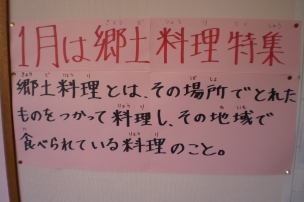 1月は郷土料理特集
郷土料理とは、その場所でとれた
ものをつかって料理し、その地域で
食べられている料理のこと。